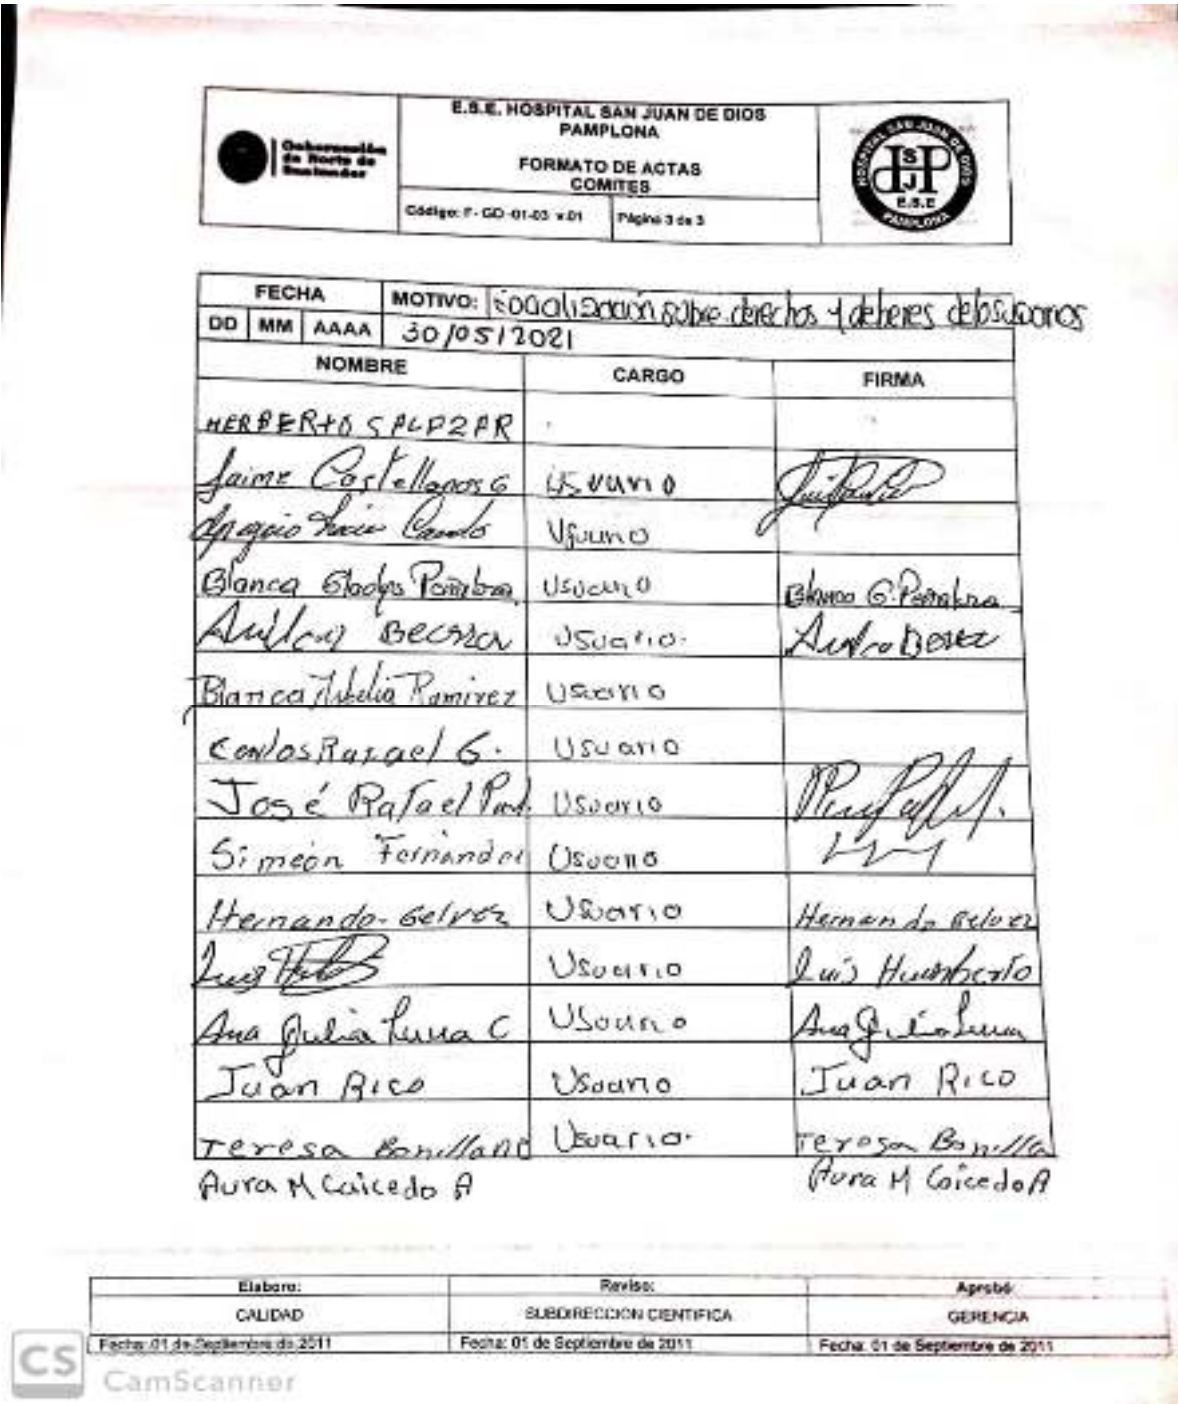 E.S.E. HOSPITAL SAN JUAN DE DIOS
PAMPLONA
Gobernación
de Norte de
Santander
FORMATO DE ACTAS
COMITES
Código: F- GD -01-03 v.01 Página 3 de 3
HOSPITAL SAN JUAN DE DIOS
HSJP
E.S.E
PAMPLONA
FECHA MOTIVO: socialización sobre derechos y deberes de los usuarios
DD MM AAAA 30/05/2021
NOMBRE CARGO FIRMA
HERBERTO SALAZAR
Jaime Castellanos G usuario
Usuario
Blanca Gladys Peñalosa Usuario Blanca G. Peñaloza
Becerra usuario.
Blanca Ramirez usuario
Carlos Rafael G. Usuario
José Rafael Usuario
Simeón Fernandez Usuario
Hernando Gelvez Usuario Hernando Gelvez
Luis Usuario Luis Humberto
Ana Julia C Usuario Ana Julia
Juan Rico Usuario Juan Rico
Teresa Usuario. Teresa Bonilla
Aura M Caicedo A Aura M Caicedo A
Elaboro: Reviso: Aprobó:
CALIDAD SUBDIRECCION CIENTIFICA GERENCIA
Fecha: 01 de Septiembre de 2011 Fecha: 01 de Septiembre de 2011 Fecha: 01 de Septiembre de 2011
CS CamScanner